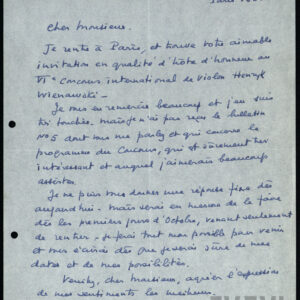 Cher Monsieur.
Je rentre à Paris, et trouve votre aimable
invitation en qualité d'hôte d'honneur au
VI° Concours international de Violon Henryk
Wieniawski -
Je vous en remercie beaucoup et j'en suis
très touchée. mais je n'ai pas reçu le bulletin
N°5 dont vous me parlez et qui concerne le
programme du Concours, qui est sûrement très
intéressant et auquel j'aimerais beaucoup
assister.
Je ne puis vous donner une réponse ferme dès
aujourd'hui - mais serai en mesure de la faire
dès les premiers jours d'Octobre, venant seulement
de rentrer - je ferai tout mon possible pour venir
et vous écrirai dès que je serai sûre de mes
dates et de mes possibilités.
Veuillez, cher Monsieur, agréer l'expression
de mes sentiments les meilleurs